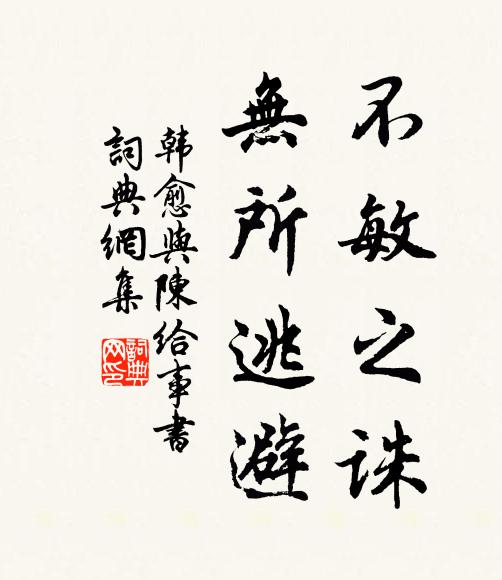 不敏之誅
無所逃避
韩愈與陳给事書
詞典網集
詞典
网印